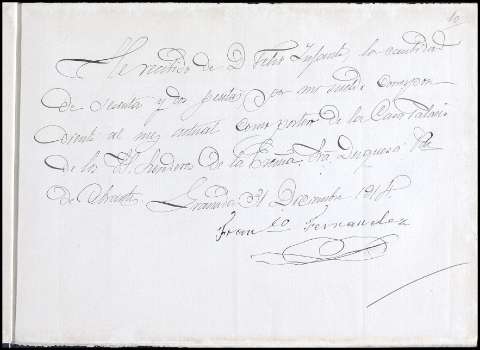 10
He recibido de D. Felix Infante la cantidad
de sesenta y dos pesetas por mi sueldo correspon
diente al mes actual como portero de la Casa Palacio
de los Herederos de la Excma. Sra. Duquesa Vda.
de Abrantes. Granada 31 Diciembre 1918.
Franco. Fernandez